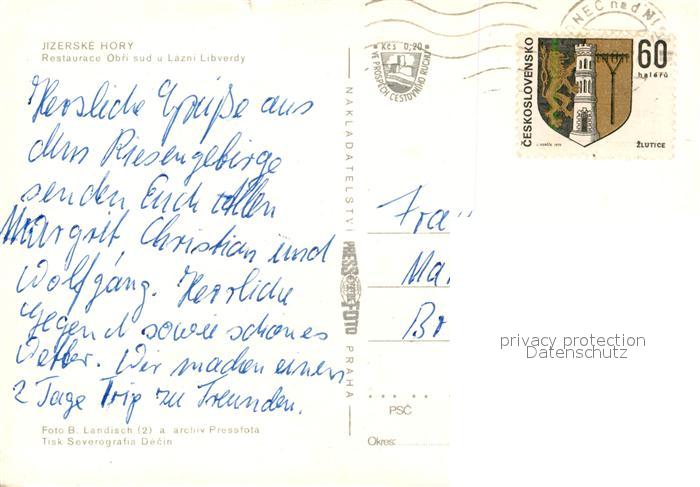 JIZERSKÉ HORY
Restaurace Obří sud u Lázní Libverdy
Herzliche Grüße aus
dem Riesengebirge
senden Euch Allen
Margrit, Christian und
Wolfgang. Herrliche
Gegend sowie schönes
Wetter. Wir machen einen
2 Tage Trip zu Freunden.
Foto B. Landisch (2) a archiv Pressfota
Tisk Severografia Děčín
NAKLADATELSTVÍ PRESSFOTO PRAHA
Kčs 0,20
VE PROSPĚCH CESTOVNÍHO RUCHU
NEC nad NIS
ČESKOSLOVENSKO
60
haléřů
ŽLUTICE
Fra
Ma
Br
privacy protection
Datenschutz
PSČ
Okres: